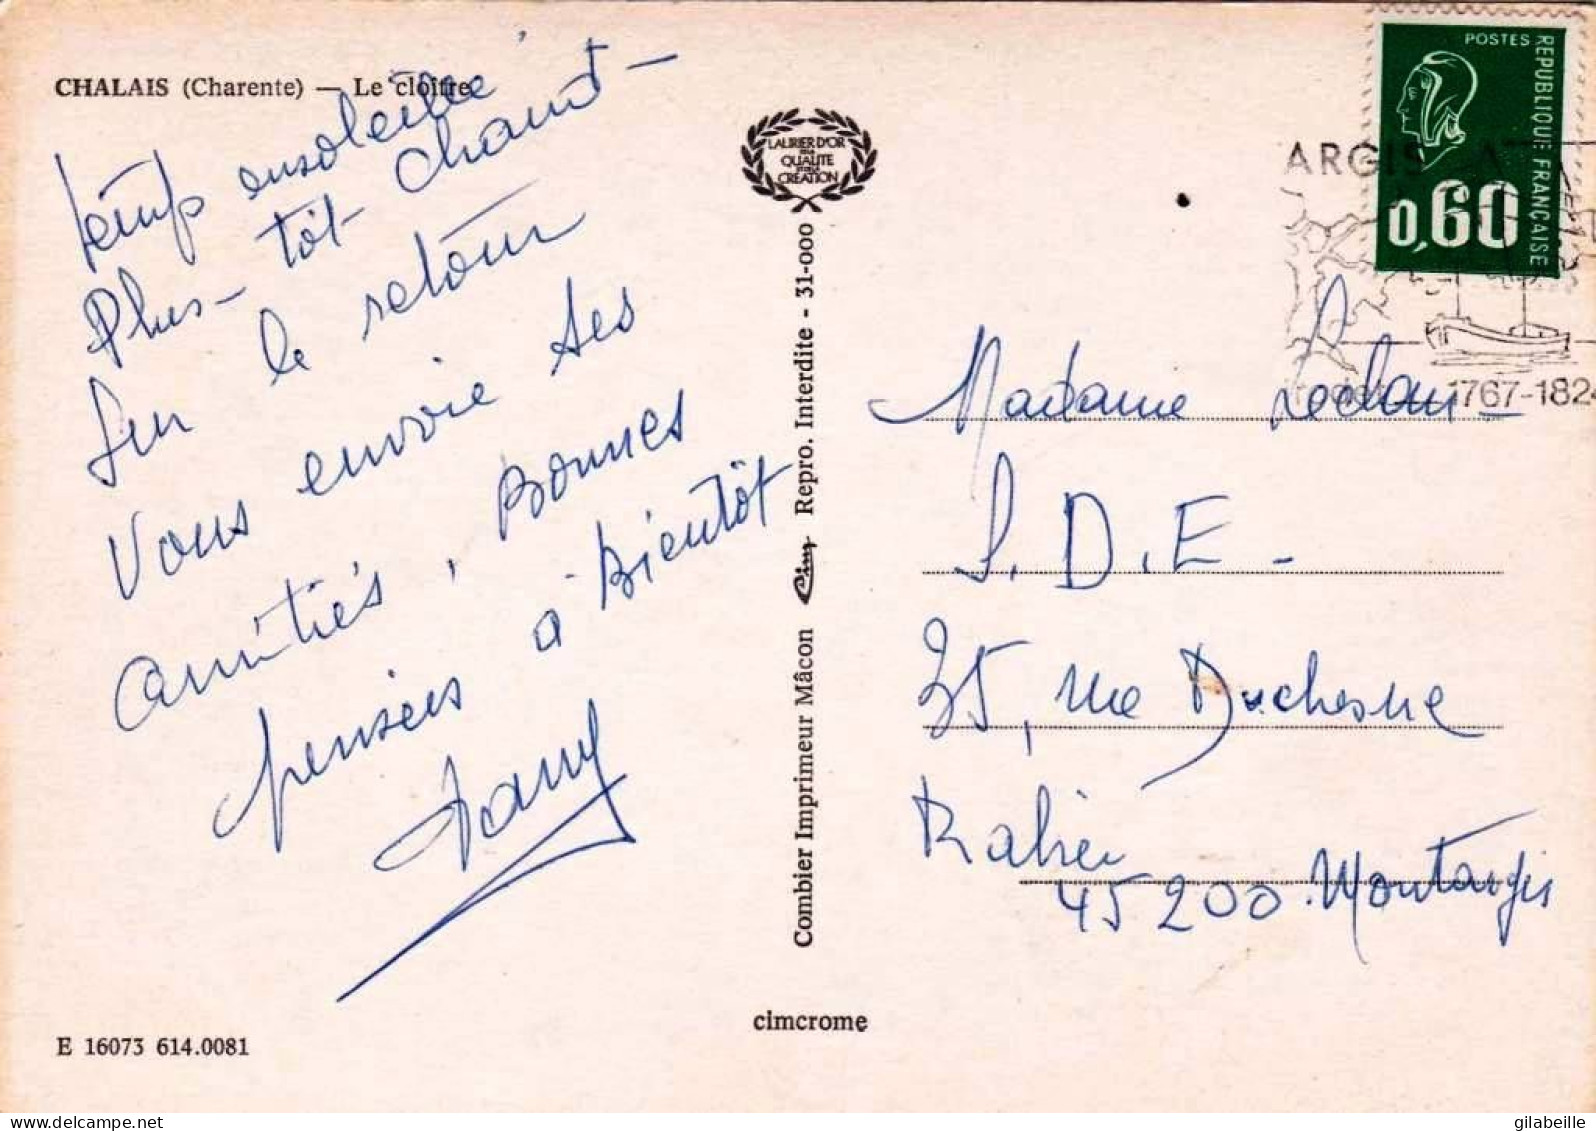 CHALAIS (Charente) — Le cloître
temps ensoleillé
Plus-tôt chaud-
sur le retour
Vous envoie ses
amitiés, Bonnes
pensées à Bientôt
Dany
E 16073 614.0081
LAURIER D'OR
QUALITE
CREATION
Combier Imprimeur Mâcon Cim Repro. Interdite - 31-000
cimcrome
POSTES
REPUBLIQUE FRANÇAISE
0,60
ARGIS
1767-1824
Madame
S.D.E-
35, rue Duchesne
45200 Montargis
gilabeille